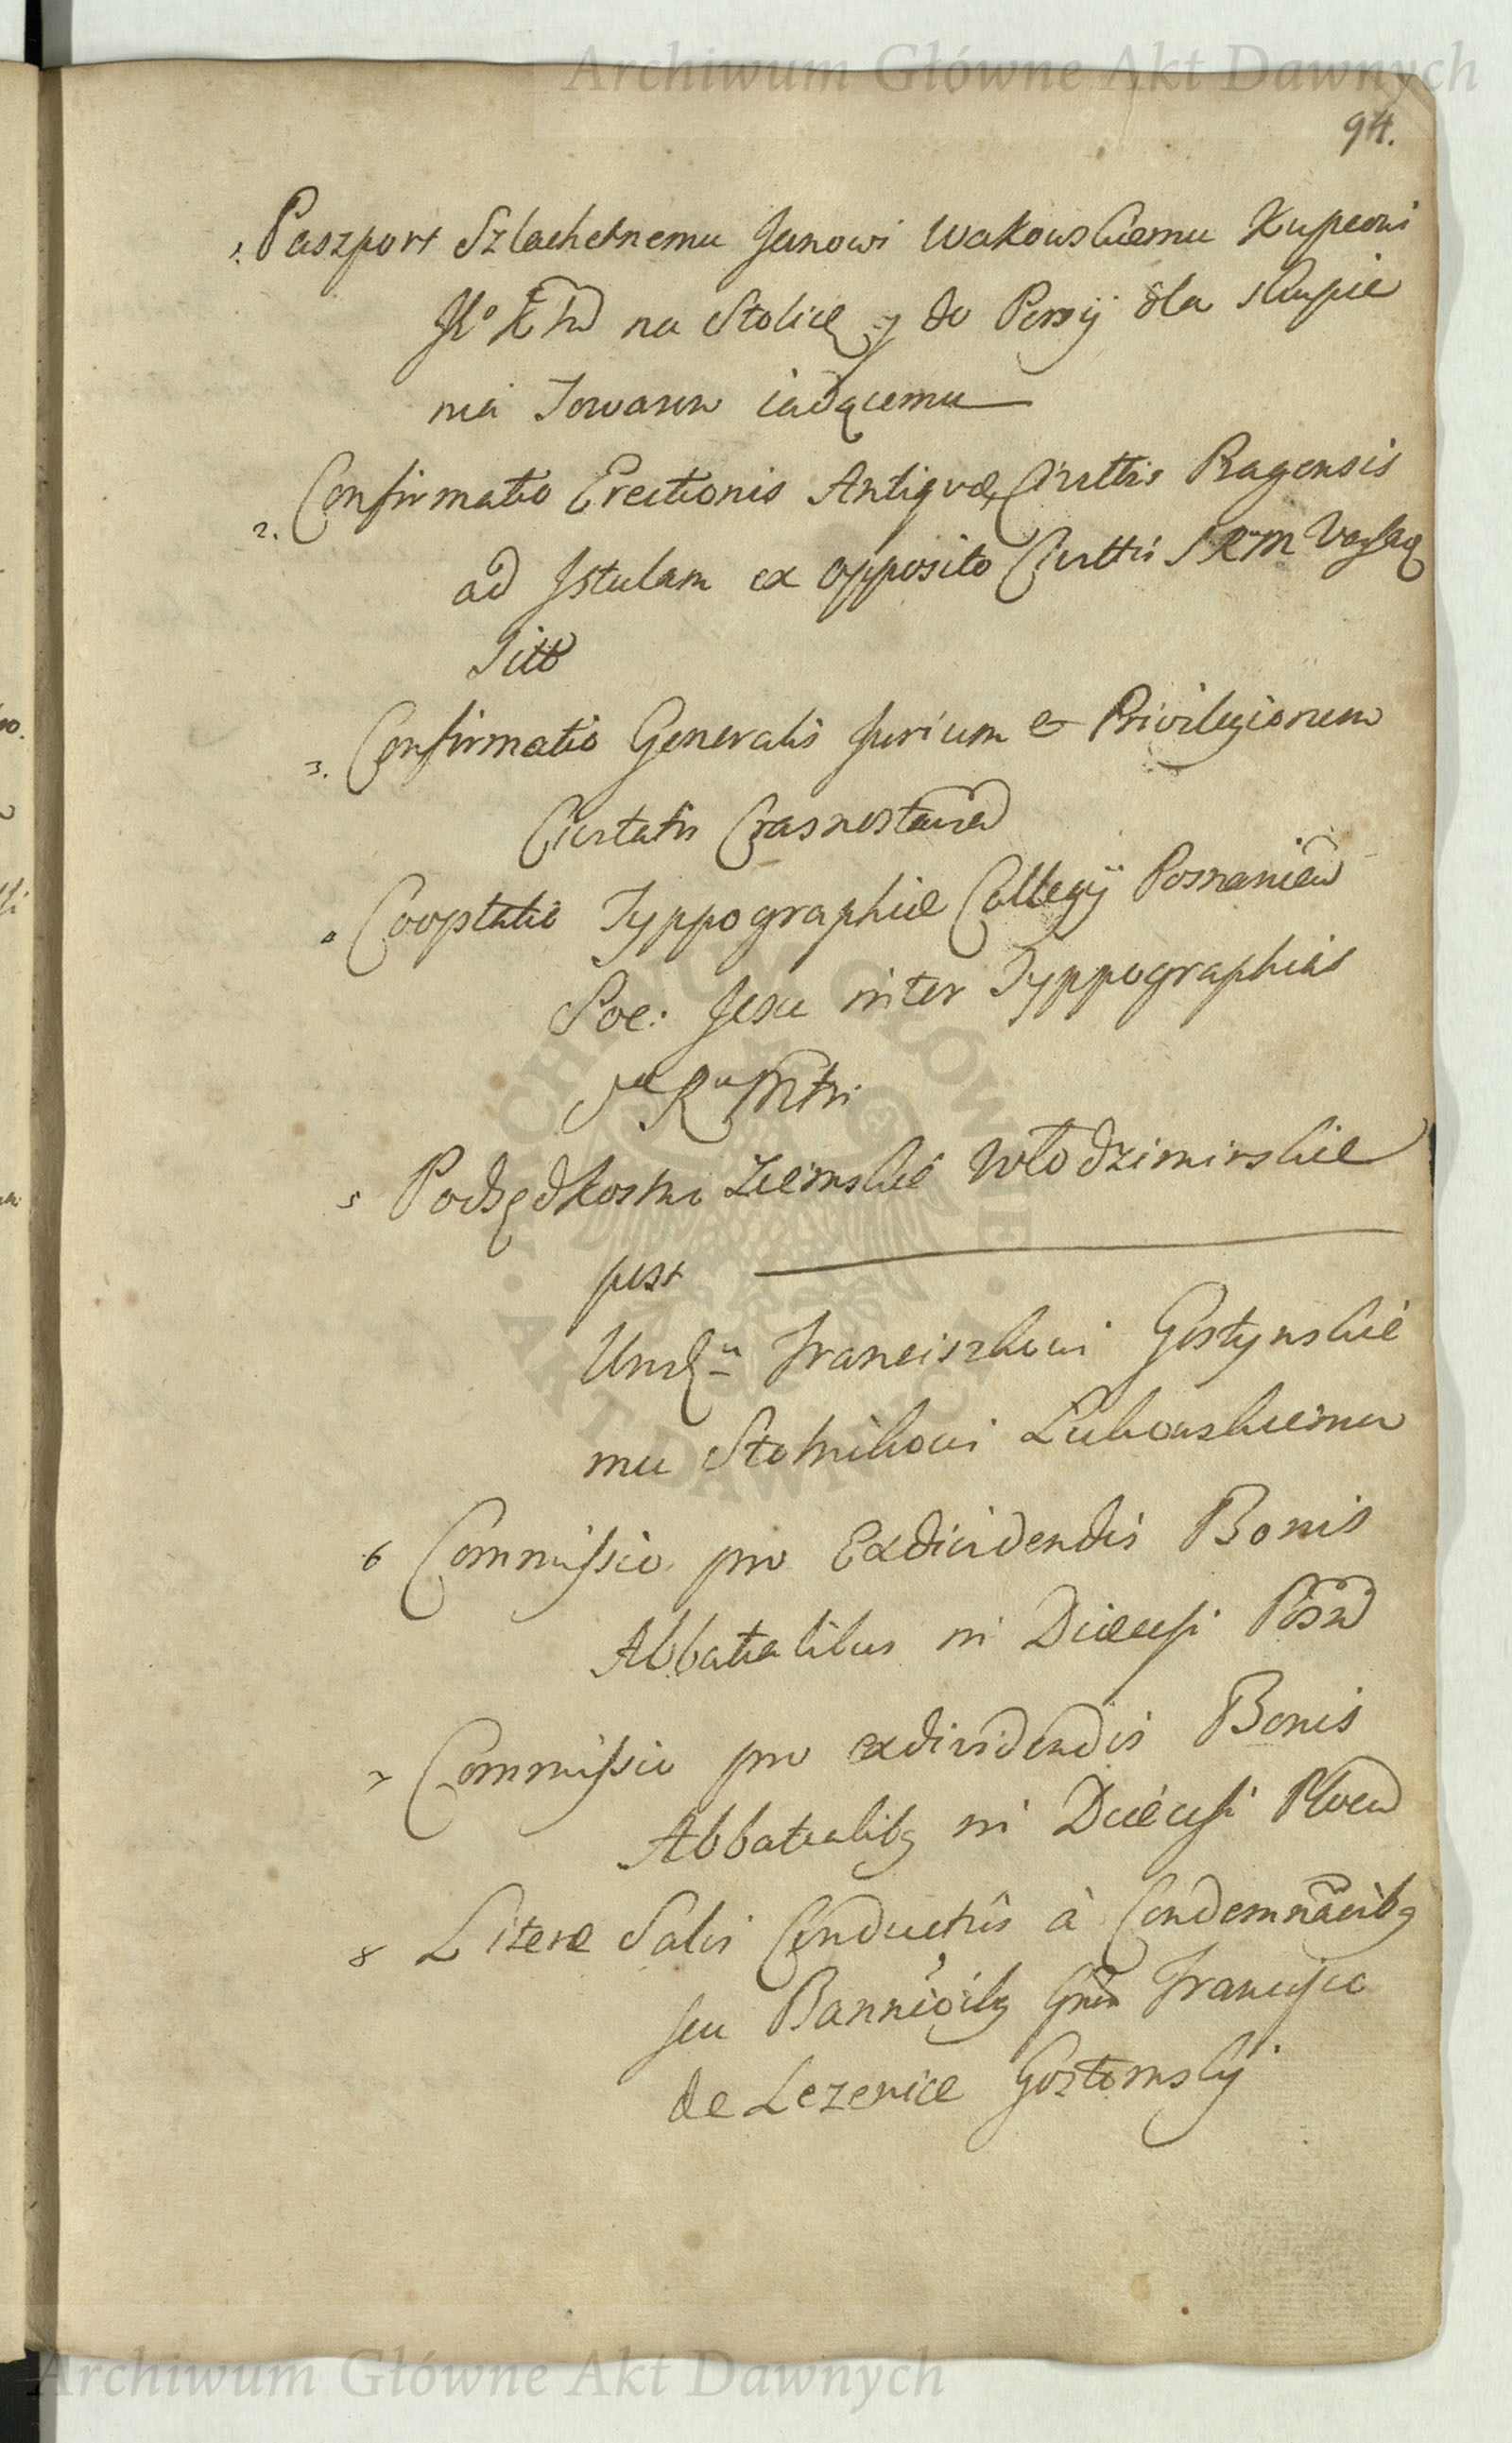 Archiwum Główne Akt Dawnych
94.
1. Paszport Szlachetnemu Janowi Wakowskiemu Kupcowi
na Stolicę y do Persyi dla skupie
nia Towarow iadącemu
2. Confirmatio Erectionis Antiquæ Ciuttis Ragensis
ad Istulam ex opposito Ciuttis SRM
Titt
3. Confirmatio Generalis Jurium & Privilegiorum
Ciutatis Crasnostauien
4 Cooptatio Typpographiæ Collegij Posnanien
Soc: Jesu inter Typpographias
Sæ Ræ Mttis
5 Podsędkostwo Ziemskie Włodzimirskie
post
Urodz. Franciszkowi Gostynskie
mu Stolnikowi Lukowskiemu
6 Commissio pro Exdividendis Bonis
Abbatialibus in Diæcesi Posn
7 Commissio pro exdividendis Bonis
Abbatialibq in Diæcesi Plocen
8 Literæ Salvi Conductûs à Condemnãoibq
seu Bannioibq Gnso Francisco
de Lezenice Gostomskij
ARCHIWUM GŁÓWNE · AKT DAWNYCH ·
Archiwum Główne Akt Dawnych